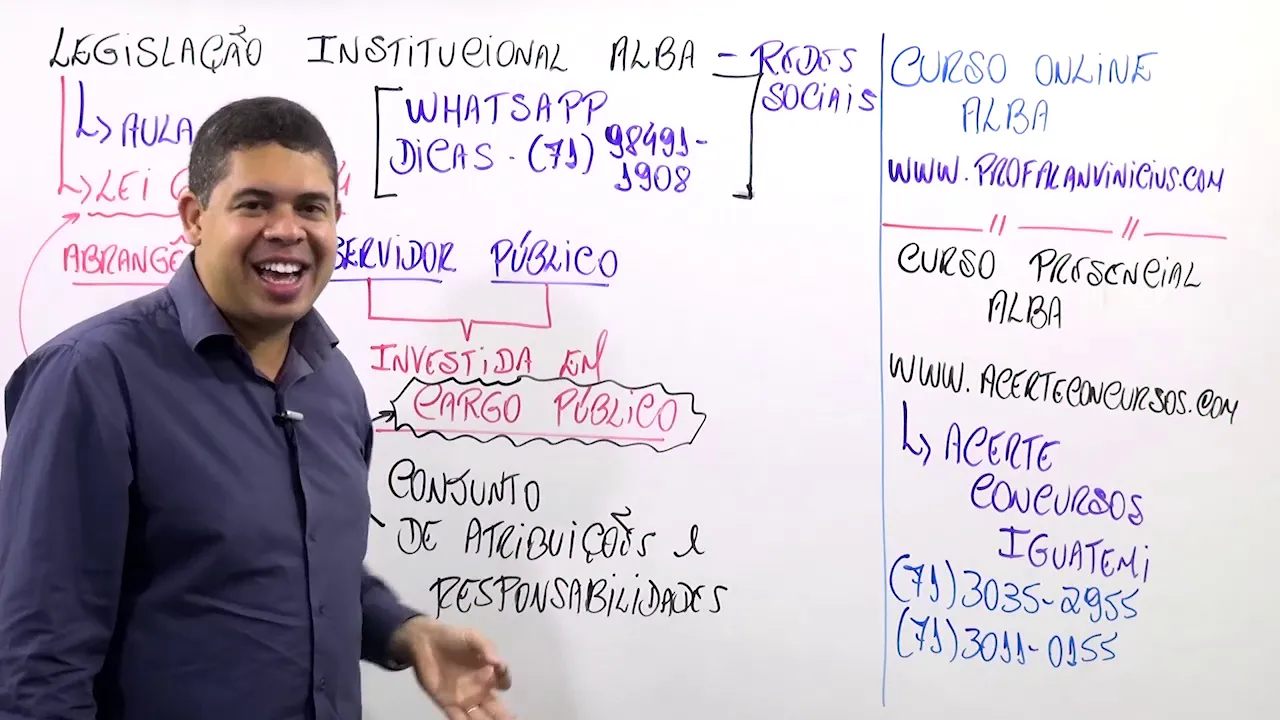 LEGISLAÇÃO INSTITUCIONAL ALBA - REDES SOCIAIS
↳ AULA
WHATSAPP
DICAS - (71) 98491-1908
↳ LEI
SERVIDOR PÚBLICO
INVESTIDA EM
CARGO PÚBLICO
CONJUNTO
DE ATRIBUIÇÕES E
RESPONSABILIDADES
CURSO ONLINE
ALBA
WWW.PROFALANVINICIUS.COM
CURSO PRESENCIAL
ALBA
WWW.ACERTECONCURSOS.COM
↳ ACERTE
CONCURSOS
IGUATEMI
(71) 3035-2955
(71) 3011-0155